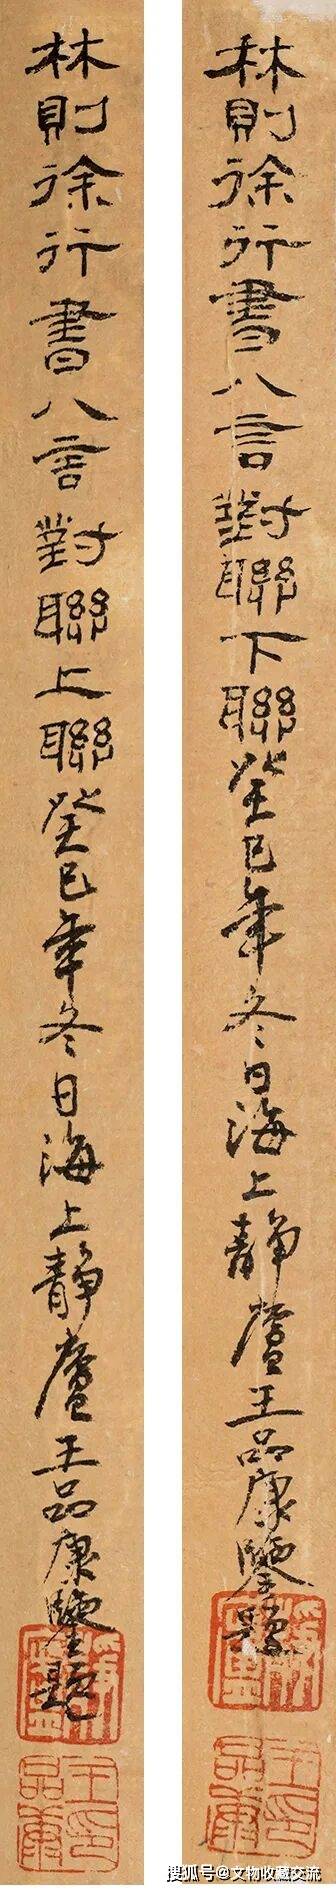 林則徐行書八言對聯上聯癸巳年冬日海上静廬王品康鑒題
王印品康
林則徐行書八言對聯下聯癸巳年冬日海上静廬王品康鑒題
王印品康
搜狐号@文物收藏交流